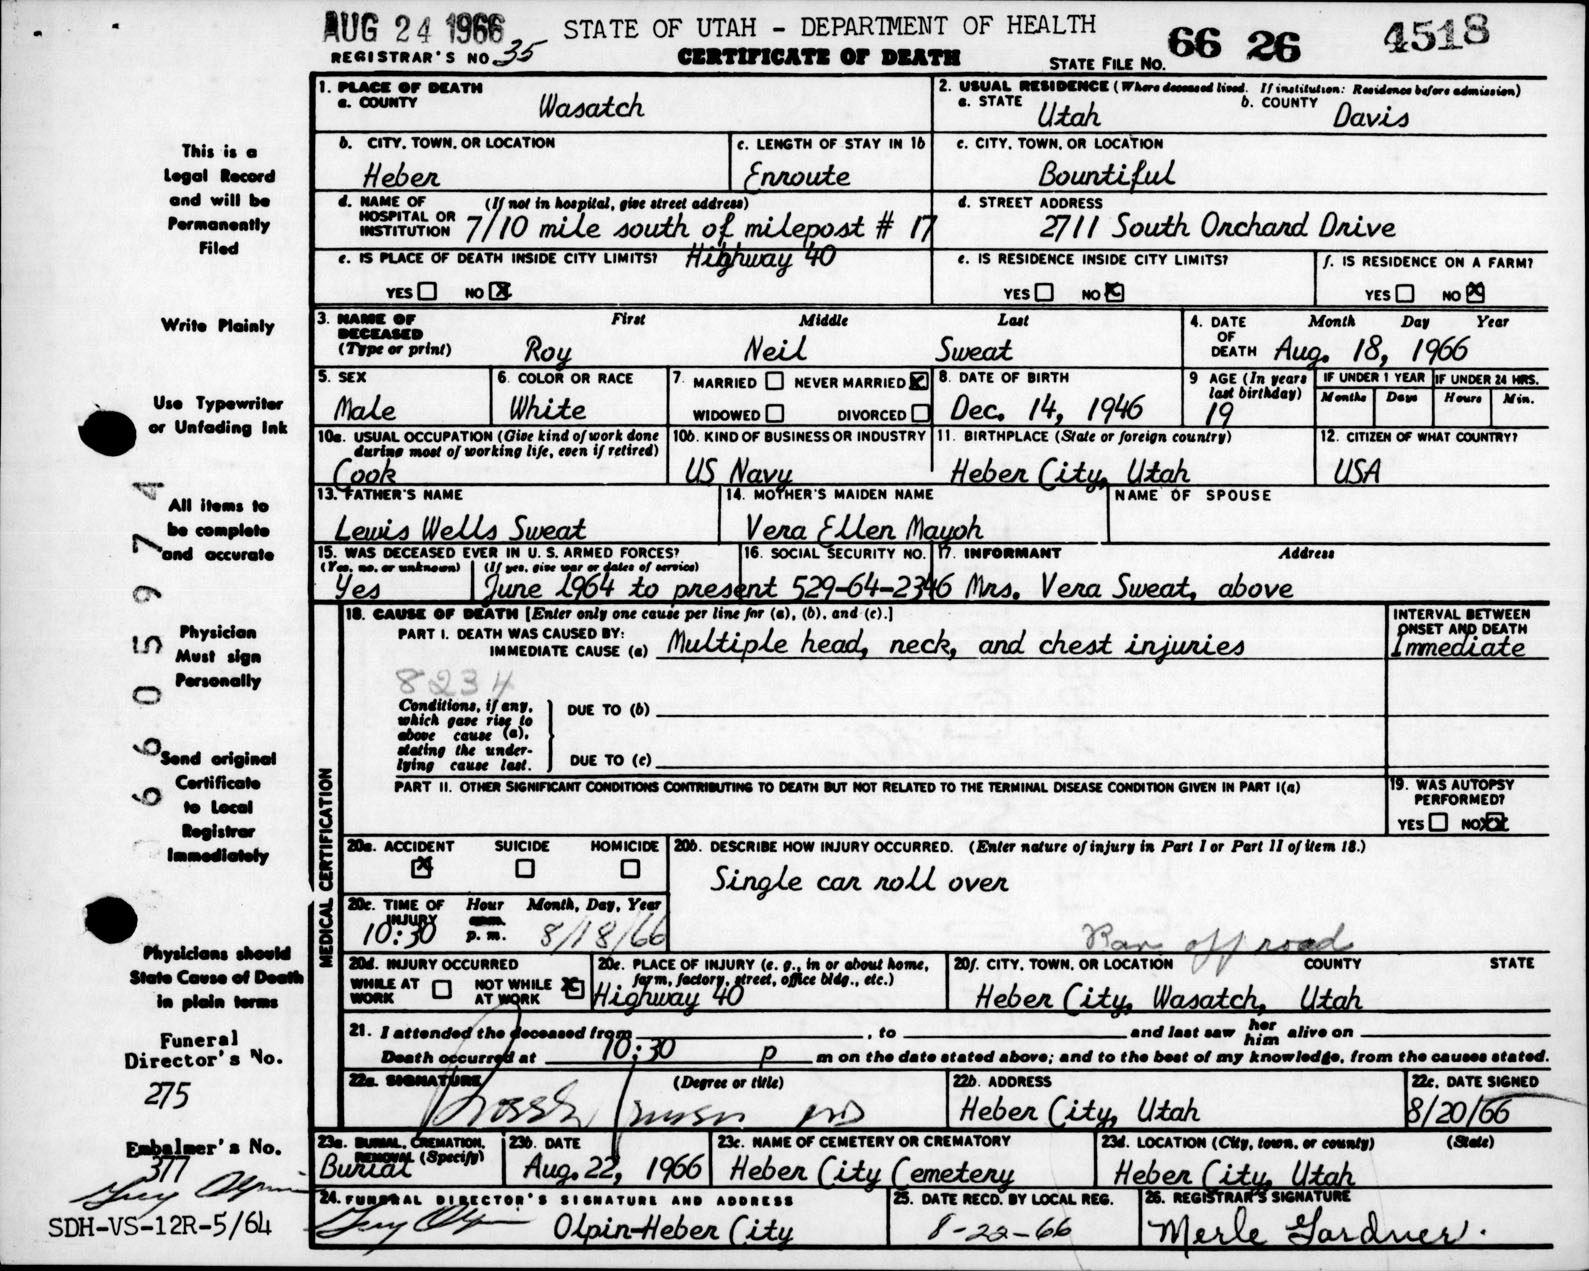 AUG 24 1966 STATE OF UTAH - DEPARTMENT OF HEALTH 66 26 4518
REGISTRAR'S NO. 35 CERTIFICATE OF DEATH STATE FILE NO.
1. PLACE OF DEATH
a. COUNTY Wasatch
2. USUAL RESIDENCE (Where deceased lived. If institution: Residence before admission)
a. STATE Utah b. COUNTY Davis
b. CITY, TOWN, OR LOCATION Heber
c. LENGTH OF STAY IN 1b Enroute
c. CITY, TOWN, OR LOCATION Bountiful
d. NAME OF HOSPITAL OR INSTITUTION (If not in hospital, give street address)
7/10 mile south of milepost # 17
Highway 40
d. STREET ADDRESS
2711 South Orchard Drive
e. IS PLACE OF DEATH INSIDE CITY LIMITS?
YES NO X
e. IS RESIDENCE INSIDE CITY LIMITS?
YES NO X
f. IS RESIDENCE ON A FARM?
YES NO X
3. NAME OF DECEASED (Type or print) First Middle Last
Roy Neil Sweat
4. DATE OF DEATH Month Day Year
Aug. 18, 1966
5. SEX Male
6. COLOR OR RACE White
7. MARRIED NEVER MARRIED X
WIDOWED DIVORCED
8. DATE OF BIRTH Dec. 14, 1946
9 AGE (In years last birthday) 19
IF UNDER 1 YEAR Months Days
IF UNDER 24 HRS. Hours Min.
10a. USUAL OCCUPATION (Give kind of work done during most of working life, even if retired)
Cook
10b. KIND OF BUSINESS OR INDUSTRY
US Navy
11. BIRTHPLACE (State or foreign country)
Heber City, Utah
12. CITIZEN OF WHAT COUNTRY?
USA
13. FATHER'S NAME
Lewis Wells Sweat
14. MOTHER'S MAIDEN NAME
Vera Ellen Mayoh
NAME OF SPOUSE
15. WAS DECEASED EVER IN U. S. ARMED FORCES?
(Yes, no, or unknown) (If yes, give war or dates of service)
Yes June 1964 to present
16. SOCIAL SECURITY NO.
529-64-2346
17. INFORMANT Address
Mrs. Vera Sweat, above
MEDICAL CERTIFICATION
18. CAUSE OF DEATH [Enter only one cause per line for (a), (b), and (c).]
PART I. DEATH WAS CAUSED BY:
IMMEDIATE CAUSE (a) Multiple head, neck, and chest injuries
INTERVAL BETWEEN ONSET AND DEATH
Immediate
8234
Conditions, if any, which gave rise to above cause (a), stating the under-lying cause last.
DUE TO (b)
DUE TO (c)
PART II. OTHER SIGNIFICANT CONDITIONS CONTRIBUTING TO DEATH BUT NOT RELATED TO THE TERMINAL DISEASE CONDITION GIVEN IN PART I(a)
19. WAS AUTOPSY PERFORMED?
YES NO XX
20a. ACCIDENT X SUICIDE HOMICIDE
20b. DESCRIBE HOW INJURY OCCURRED. (Enter nature of injury in Part I or Part II of item 18.)
Single car roll over
Ran off road
20c. TIME OF INJURY Hour Month, Day, Year
10:30 a.m. p. m. 8/18/66
20d. INJURY OCCURRED
WHILE AT WORK NOT WHILE AT WORK X
20e. PLACE OF INJURY (e. g., in or about home, farm, factory, street, office bldg., etc.)
Highway 40
20f. CITY, TOWN, OR LOCATION COUNTY STATE
Heber City, Wasatch, Utah
21. I attended the deceased from , to and last saw her him alive on
Death occurred at 10:30 p m on the date stated above; and to the best of my knowledge, from the causes stated.
22a. SIGNATURE (Degree or title)
MD
22b. ADDRESS
Heber City, Utah
22c. DATE SIGNED
8/20/66
23a. BURIAL, CREMATION, REMOVAL (Specify)
Burial
23b. DATE
Aug. 22, 1966
23c. NAME OF CEMETERY OR CREMATORY
Heber City Cemetery
23d. LOCATION (City, town, or county) (State)
Heber City, Utah
24. FUNERAL DIRECTOR'S SIGNATURE AND ADDRESS
Olpin-Heber City
25. DATE RECD. BY LOCAL REG.
8-22-66
26. REGISTRAR'S SIGNATURE
Merle Gardner.
This is a
Legal Record
and will be
Permanently
Filed
Write Plainly
Use Typewriter
or Unfading Ink
All items to
be complete
and accurate
Physician
Must sign
Personally
Send original
Certificate
to Local
Registrar
Immediately
Physicians should
State Cause of Death
in plain terms
Funeral
Director's No.
275
Embalmer's No.
377
SDH-VS-12R-5/64
6605974